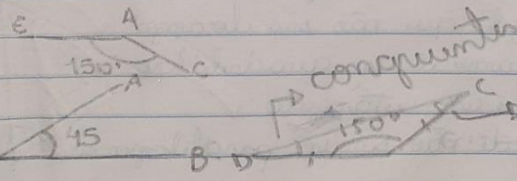 E A
150° C
A
congruent
45 150° C
B D